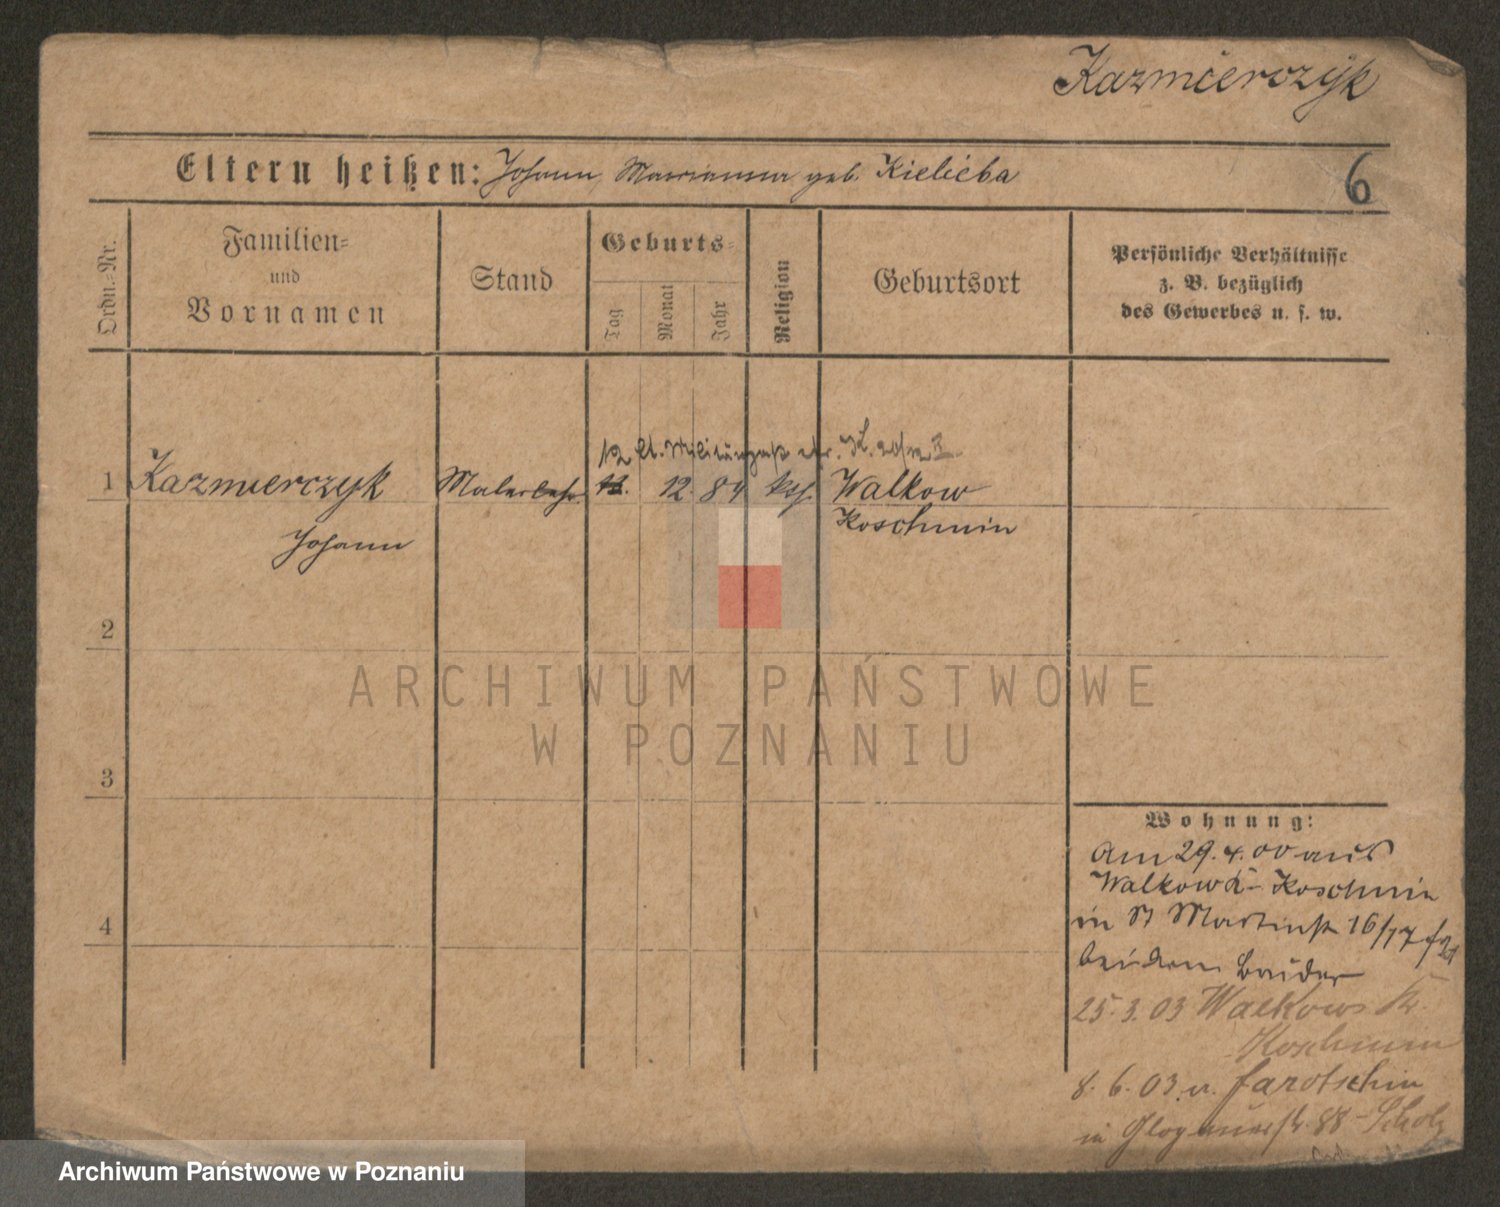 Kazmierczyk
Eltern heißen: Johann, Marianna geb. Kielieba
6
Ordn.-Nr.
Familien- und Vornamen
Stand
Geburts-
Tag
Monat
Jahr
Religion
Geburtsort
Persönliche Verhältnisse
z. B. bezüglich
des Gewerbes u. s. w.
12 lt. Militärpaß
1 Kazmierczyk Malerlehr. 12. 84 kth. Walkow
Koschmin
Johann
2
3
4
Wohnung:
Am 29. 4. 00 aus
Walkow K. Koschmin
in St Martinstr 16/17
bei dem Bruder
25. 3. 03 Walkow Kr.
Koschmin
8. 6. 03. v. Jarotschin
in Glogauerstr. 88 - Scholz
ARCHIWUM PAŃSTWOWE
W POZNANIU
Archiwum Państwowe w Poznaniu